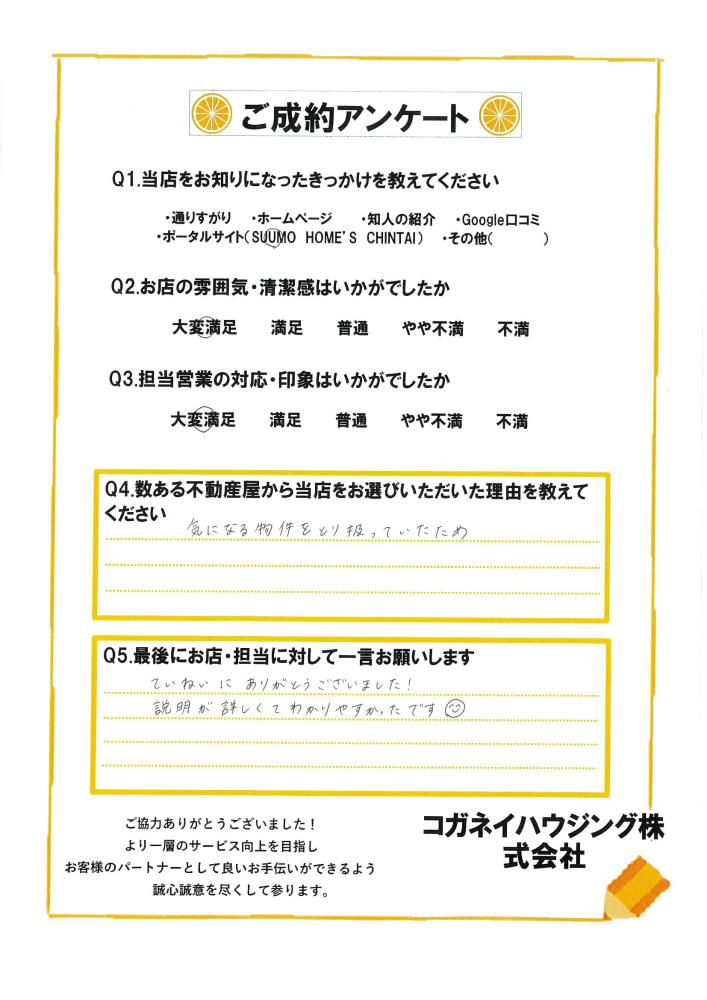 ご成約アンケート
Q1.当店をお知りになったきっかけを教えてください
・通りすがり ・ホームページ ・知人の紹介 ・Google口コミ
・ポータルサイト(SUUMO HOME'S CHINTAI) ・その他( )
Q2.お店の雰囲気・清潔感はいかがでしたか
大変満足 満足 普通 やや不満 不満
Q3.担当営業の対応・印象はいかがでしたか
大変満足 満足 普通 やや不満 不満
Q4.数ある不動産屋から当店をお選びいただいた理由を教えて
ください
気になる物件をとり扱っていたため
Q5.最後にお店・担当に対して一言お願いします
ていねいに ありがとうございました!
説明が詳しくてわかりやすかったです
ご協力ありがとうございました!
より一層のサービス向上を目指し
お客様のパートナーとして良いお手伝いができるよう
誠心誠意を尽くして参ります。
コガネイハウジング株
式会社